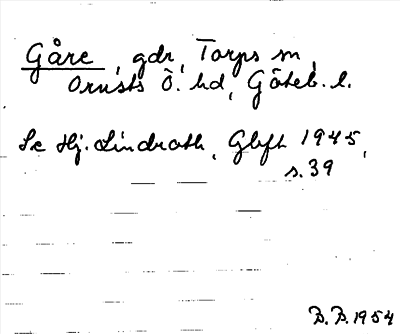 Gåre, gdr, Torps sn,
Orusts Ö. hd, Göteb. l.
Se Hj. Lindroth, Gbgft 1945,
s. 39
B. B. 1954